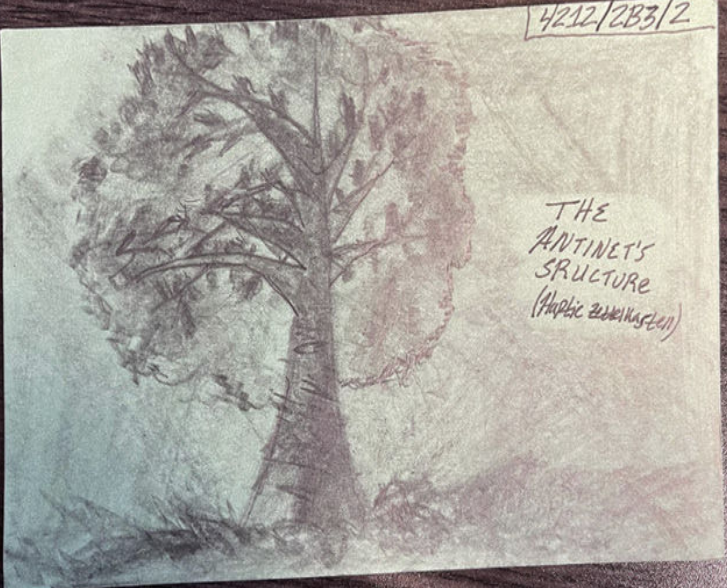 4212/2B3/2
THE
ANTINET'S
SRUCTURE
(Haptic zettelkasten)